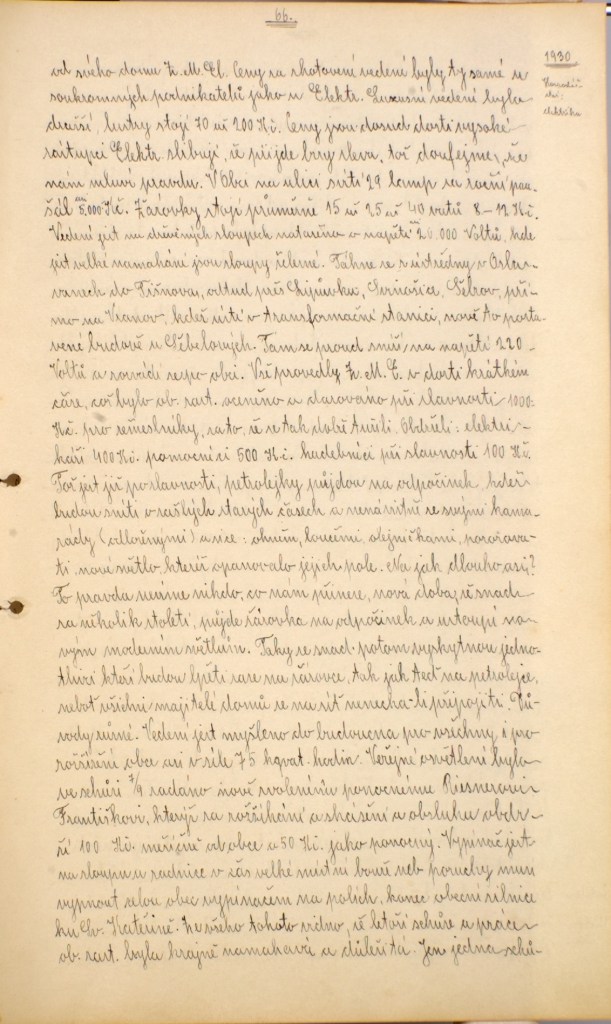 66.
1930
od svého domu Z. M. El. Ceny za zhotovení vedení byly ty samé u
soukromných podnikatelů jako u Elektr. Luxusní vedení bylo
dražší, lustry stojí 70 až 200 Kč. Ceny jsou dosud dosti vysoké
zástupci Elektr. slibují, že přijde brzy sleva, tož doufejme, že
nám mluví pravdu. V Obci na ulici svítí 29 lamp za roční pau-
šál 5.000 Kč. Žárovky stojí průměrně 15 až 25 až 40 vatů 8–12 Kč.
Vedení jest na dřevěných sloupech nataženo o napětí 20.000 Voltů, kde
jest velké namahání jsou sloupy železné. Táhne se z ústředny v Osla-
vanech do Tišnova, odtud přes Lipůvku, Svinošice, Šebrov, pří-
mo na Vranov, kdež ústí v transformační stanici, nově to posta-
vené budově u Šebelových. Tam se proud sníží na napětí 220
Voltů a rozvádí se po obci. Vše provedly Z. M. E. v dosti krátkém
čase, což bylo ob. zast. oceněno a darováno při slavnosti 1000
Kč. pro řemeslníky, za to, že se tak dobře činili. Obdrželi: elektri-
káři 400 Kč. pomocníci 500 Kč. hudebníci při slavnosti 100 Kč.
Tož jest již po slavnosti, petrolejky půjdou na odpočinek, kdež
budou sníti o zašlých starých časech a nenávistně se svými kama-
rády (odloženými) a sice: ohněm, loučemi, olejničkami, pozorova-
ti nové světlo, které opanovalo jejich pole. Na jak dlouho asi?
To pravda nevíme nikdo, co nám přinese, nová doba, že snad
za několik století, půjde žárovka na odpočinek a ustoupí no-
vým moderním světlům. Taky se snad potom vyskytnou jedno-
tlivci kteří budou lpěti zase na žárovce, tak jak teď na petrolejce,
neboť všichni majitelé domů se na síť nenechali připojiti. Dů-
vody různé. Vedení jest myšleno do budoucna pro všechny i pro
rozšíření obce asi v síle 75 kilovat hodin. Veřejné osvětlení bylo
ve schůzi 7/9 zadáno nově zvolenému ponocnému Riesnerovi
Františkovi, kterýž za rozžíhání a shášení a obsluhu obdr-
ží 100 Kč. měsíčně od obce a 50 Kč. jako ponocný. Vypínač jest
na sloupu u radnice v čas velké místní bouře neb poruchy nutno
vypnout celou obec vypínačem na polích, konec obecní silnice
ku Sv. Kateřině. Ze všeho tohoto vidno, že letoší schůze a práce
ob. zast. byla krajně namahavá a důležitá. Jen jedna schů-